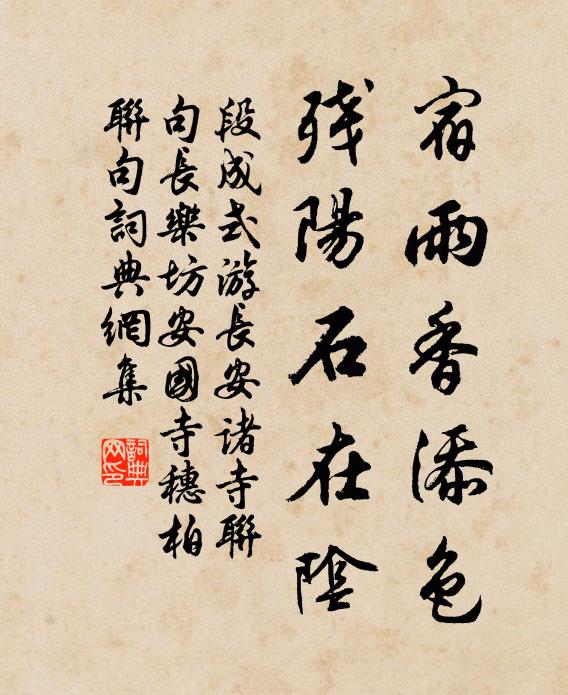 宿雨香添色
残陽石在陰
段成式游長安诸寺聯
句長樂坊安國寺穗柏
聯句詞典網集
詞典网印